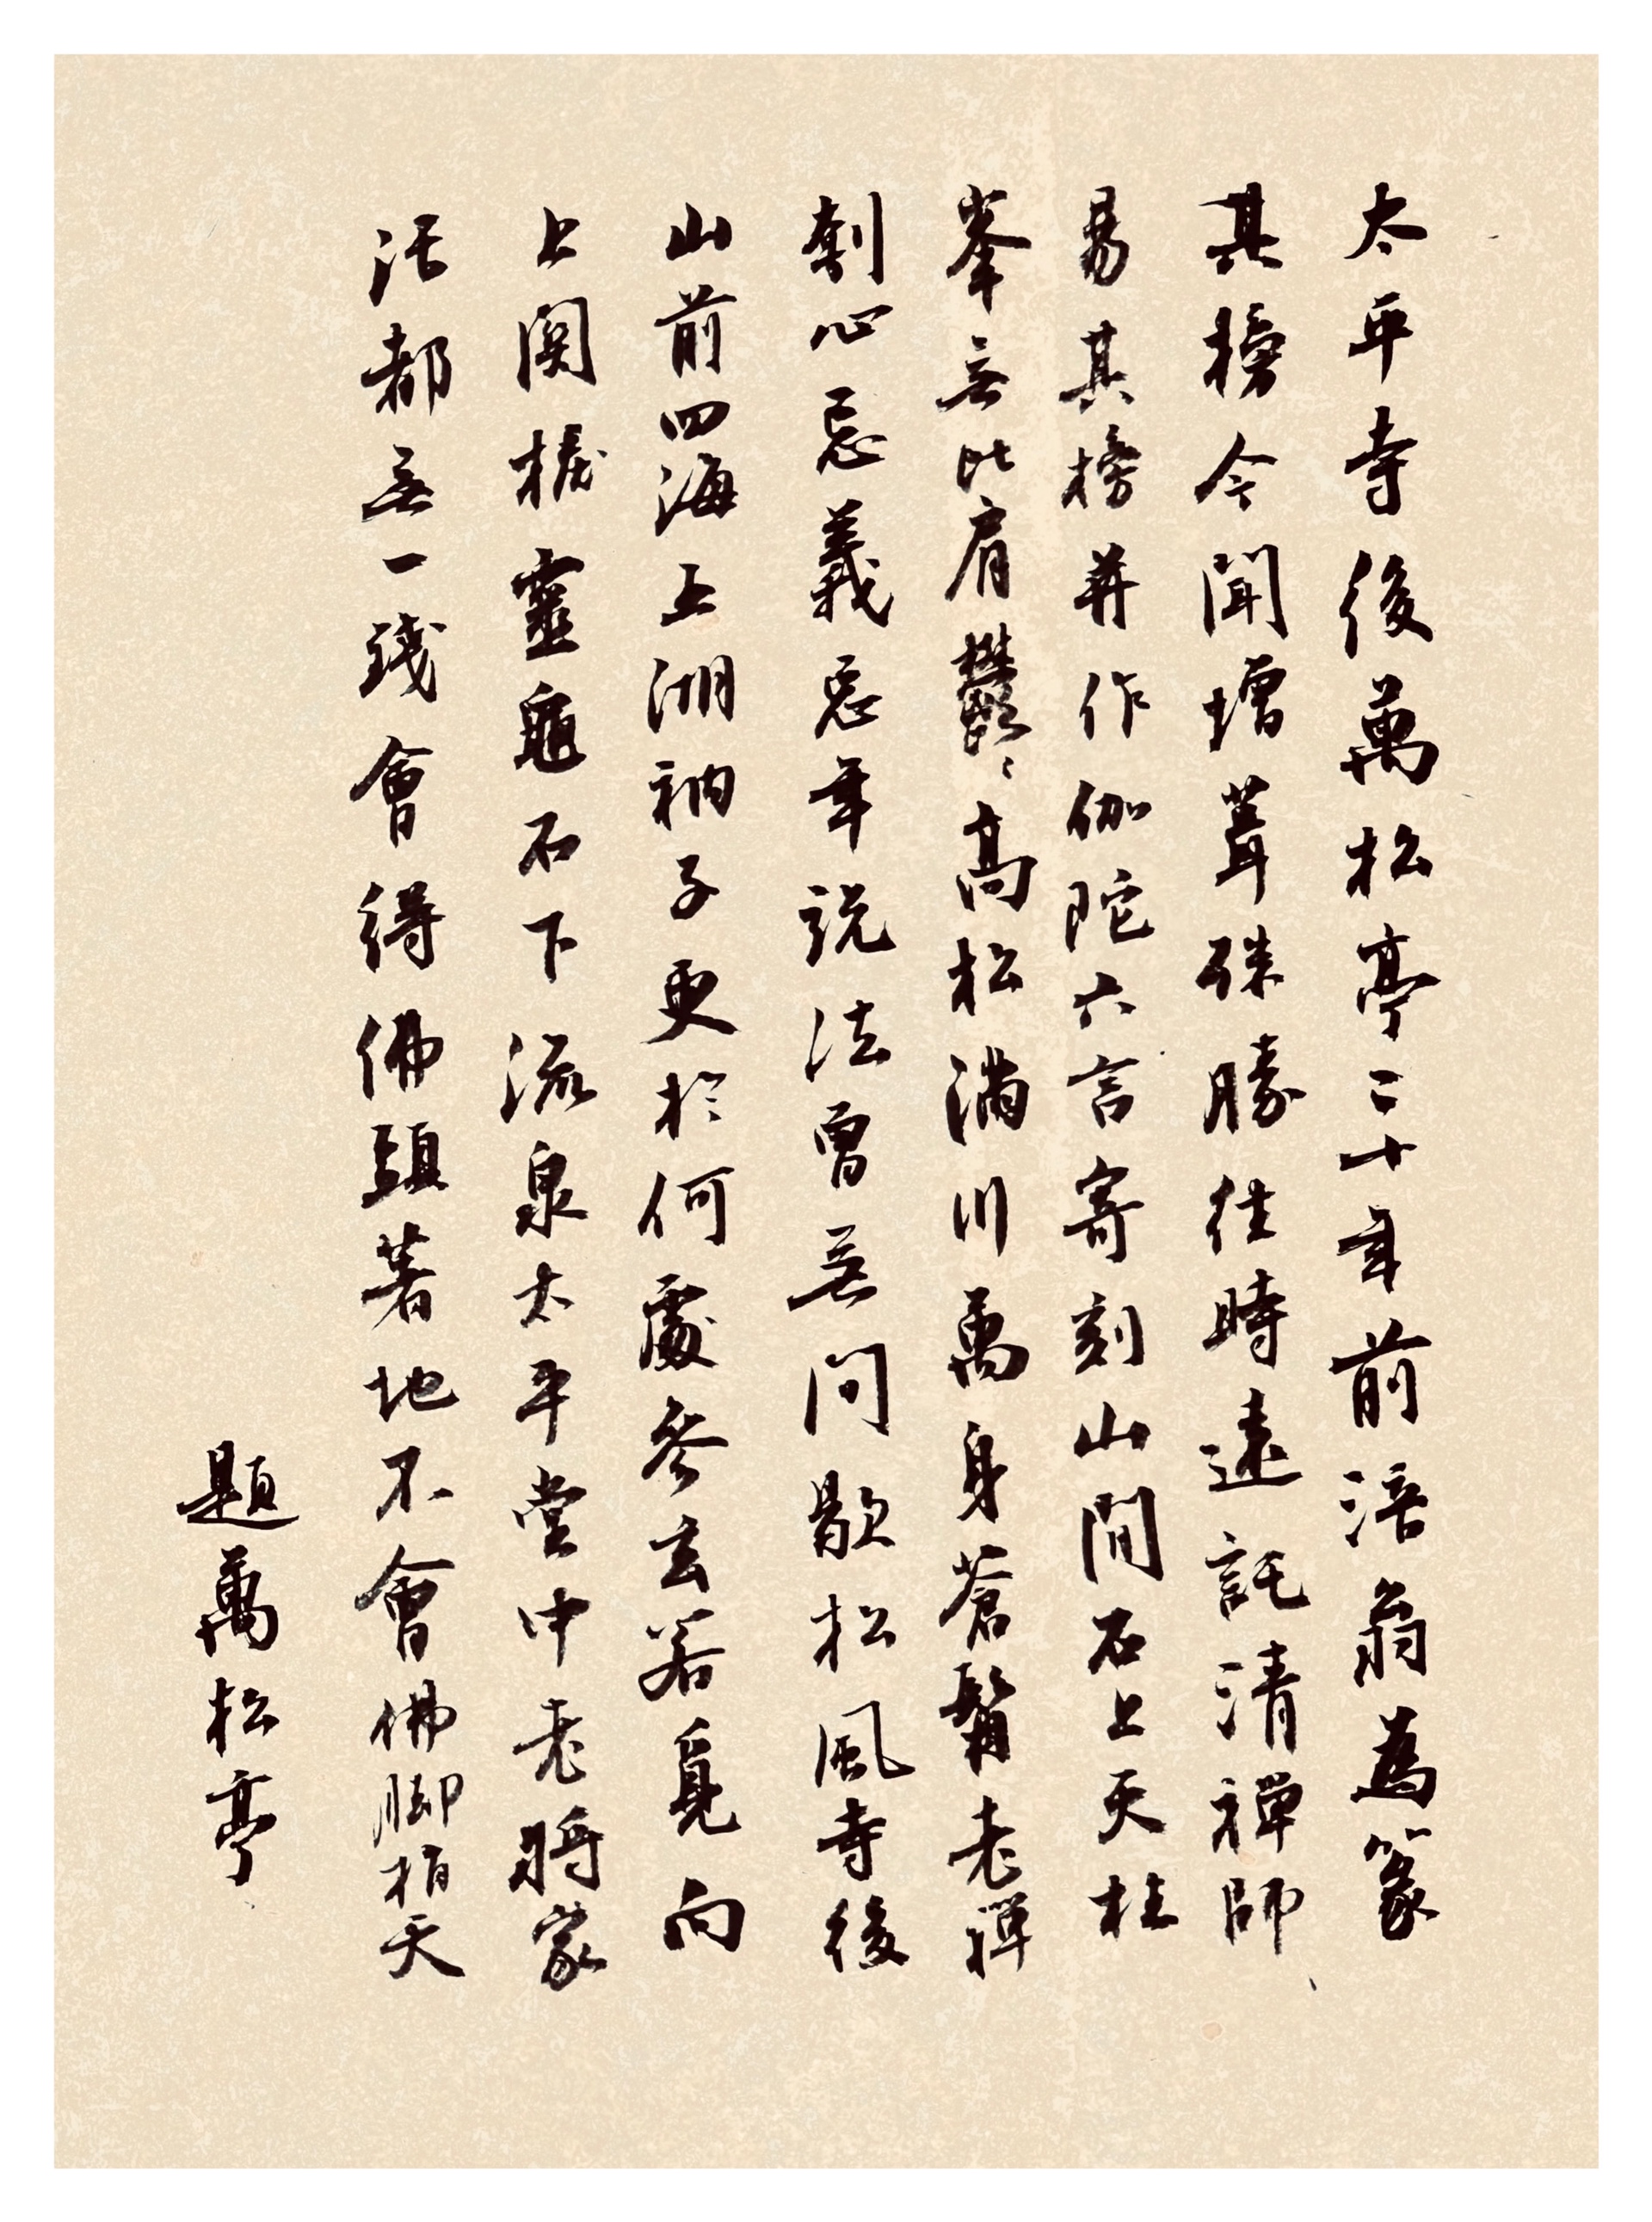 太平寺後萬松亭二十年前涪翁為篆
其榜今聞增葺殊勝往時遠託清禪師
易其榜并作伽陀六言寄刻山間石上天柱
峯無比肩鬱鬱高松滿川萬身蒼髯老禪
刳心忘義忘年說法曾無間歇松風寺後
山前四海五湖衲子更於何處參玄若覓向
上関棙靈龜石下流泉太平堂中老將家
活都無一錢會得佛頭著地不會佛腳梢天
題萬松亭